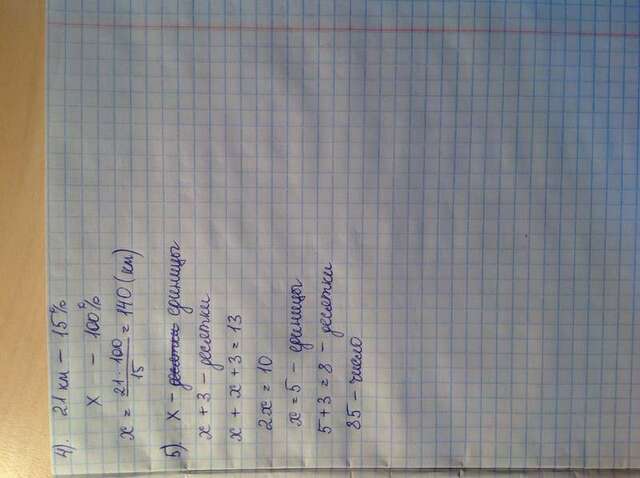 4). 21 км – 15%
х – 100%
х = 21 · 100 / 15 = 140 (км)
5) х – десятки единицы
х + 3 – десятки
х + х + 3 = 13
2х = 10
х = 5 – единицы
5 + 3 = 8 – десятки
85 – число